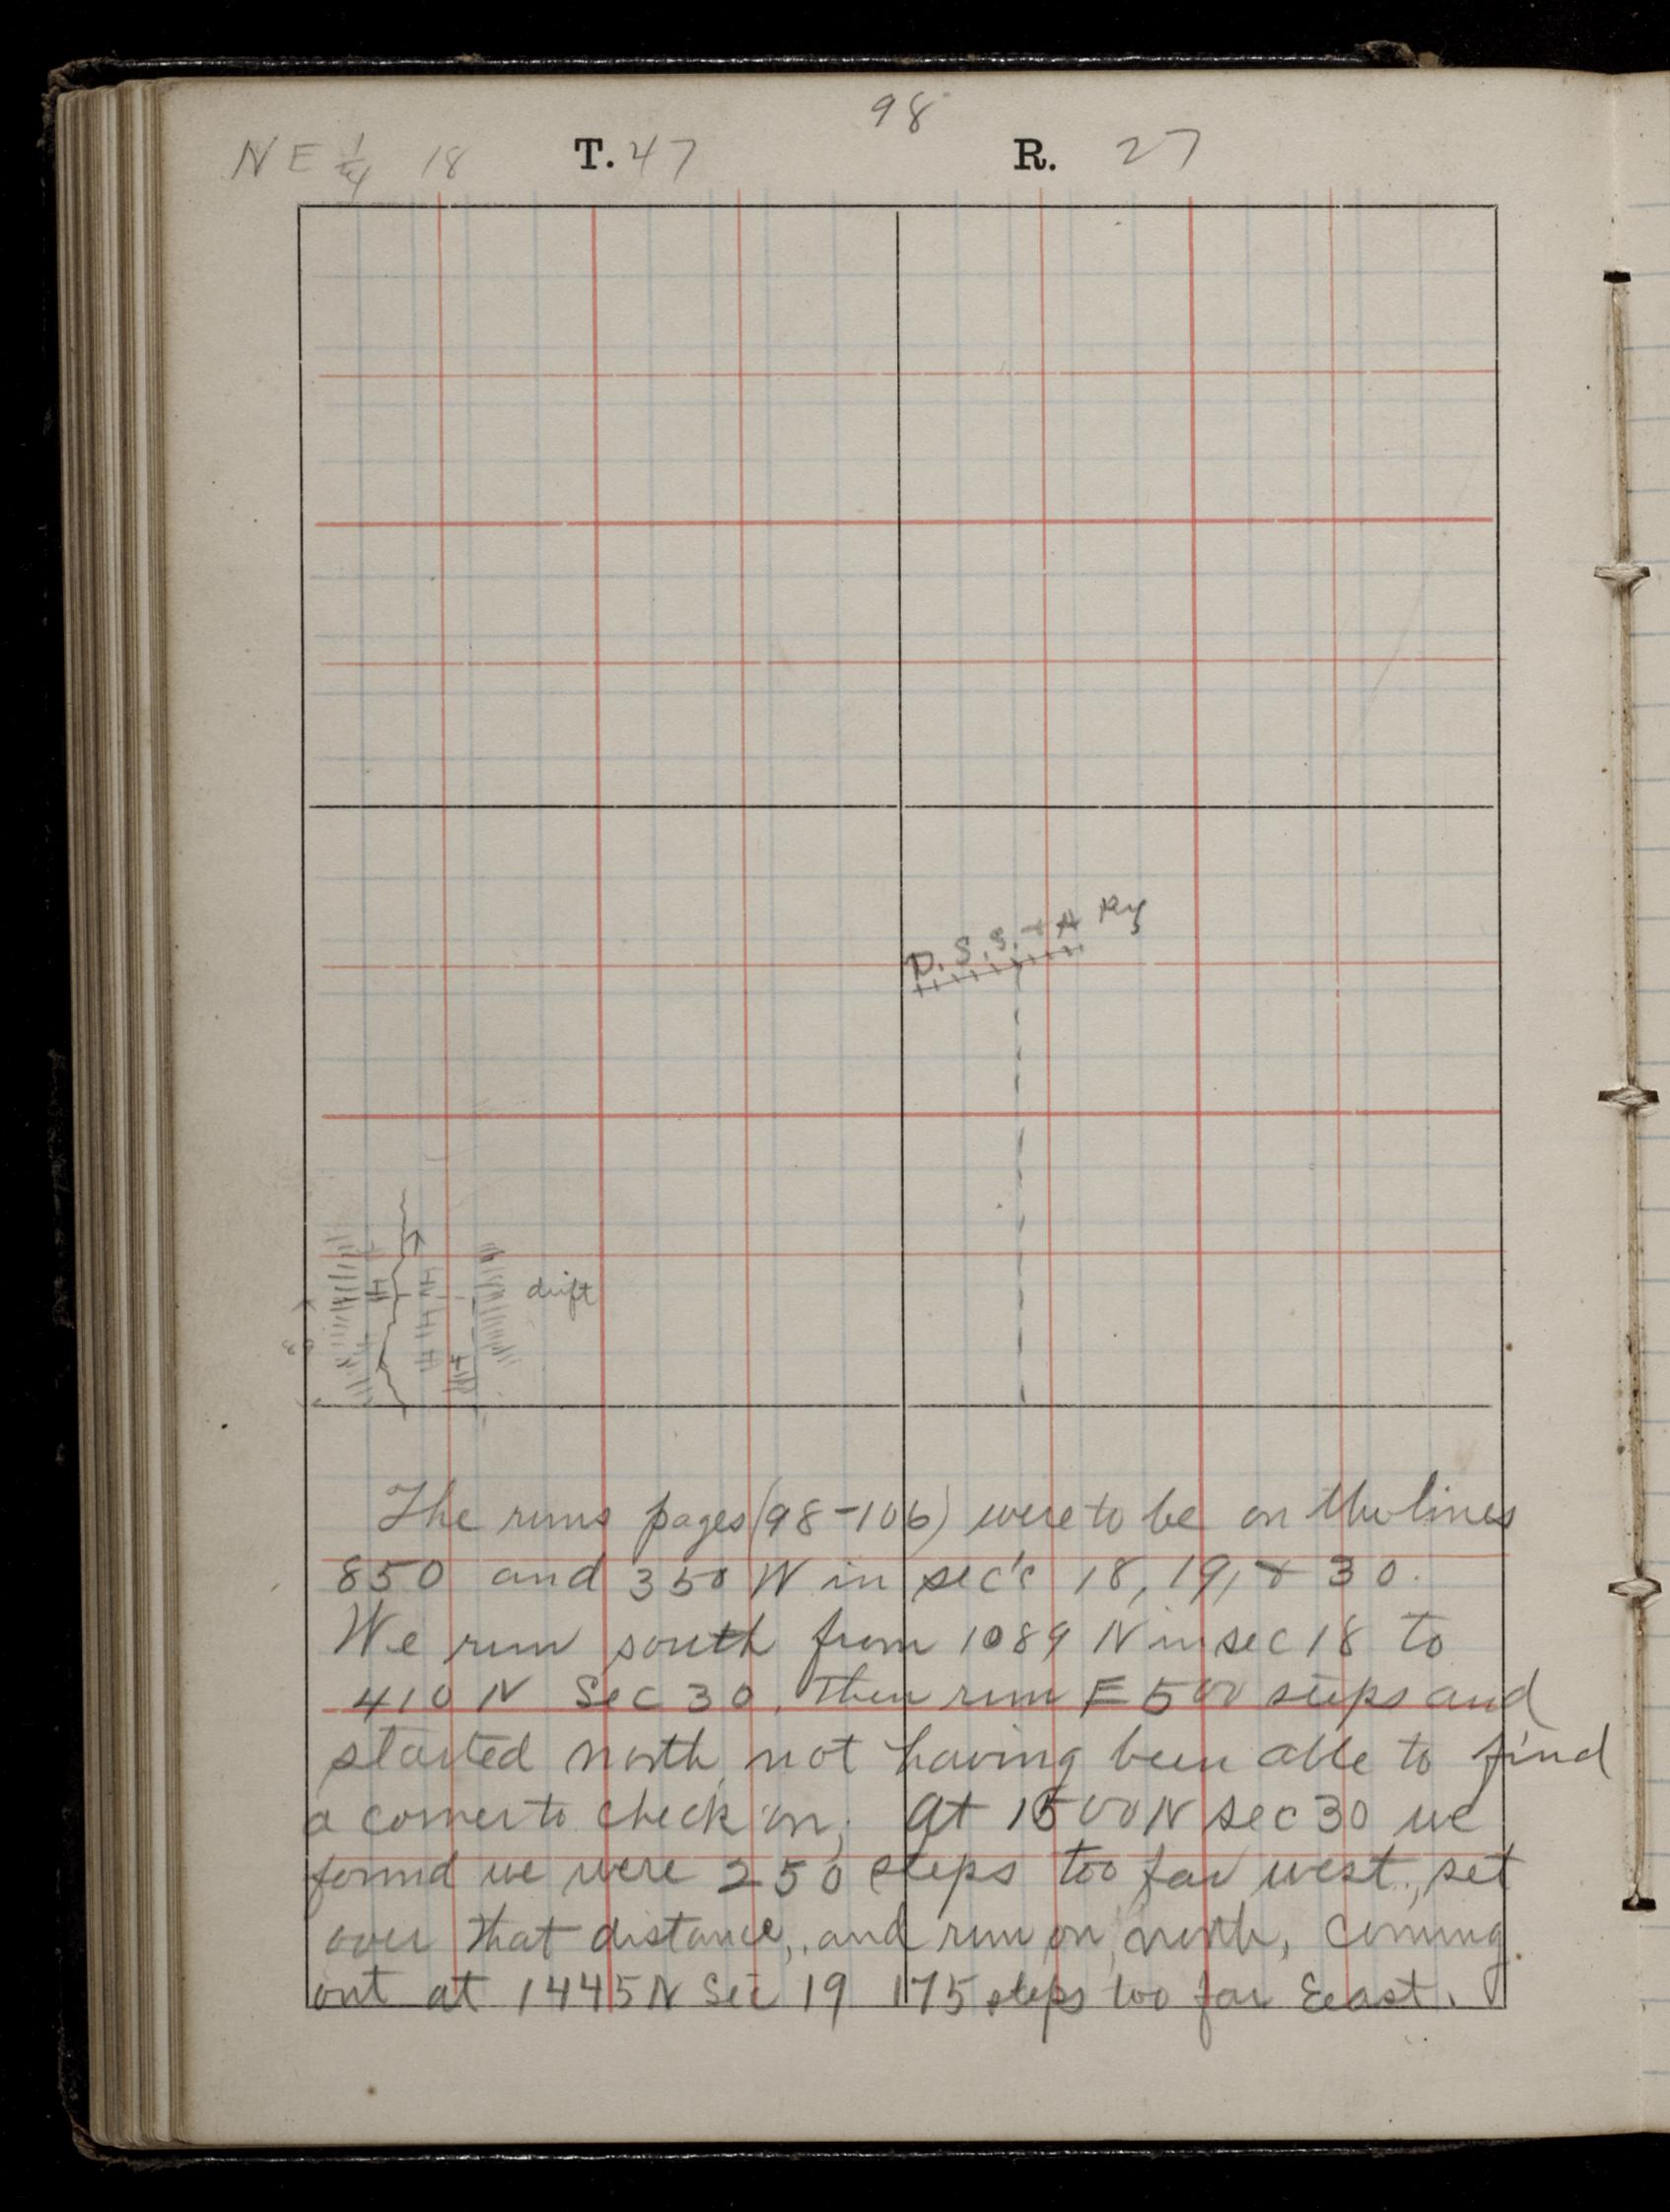 98
NE 1/4 18 T. 47 R. 27
D. S. S. + A Ry
drift
The runs pages (98-106) were to be on the lines
850 and 350 W in sec's 18, 19, + 30.
We run south from 1089 N in sec 18 to
410 N Sec 30. Then run E 500 steps and
started north, not having been able to find
a corner to check on; At 1500 N sec 30 we
found we were 250 steps too far west, set
over that distance, and run on north, coming
out at 1445 N Sec 19 175 steps too far Eeast.